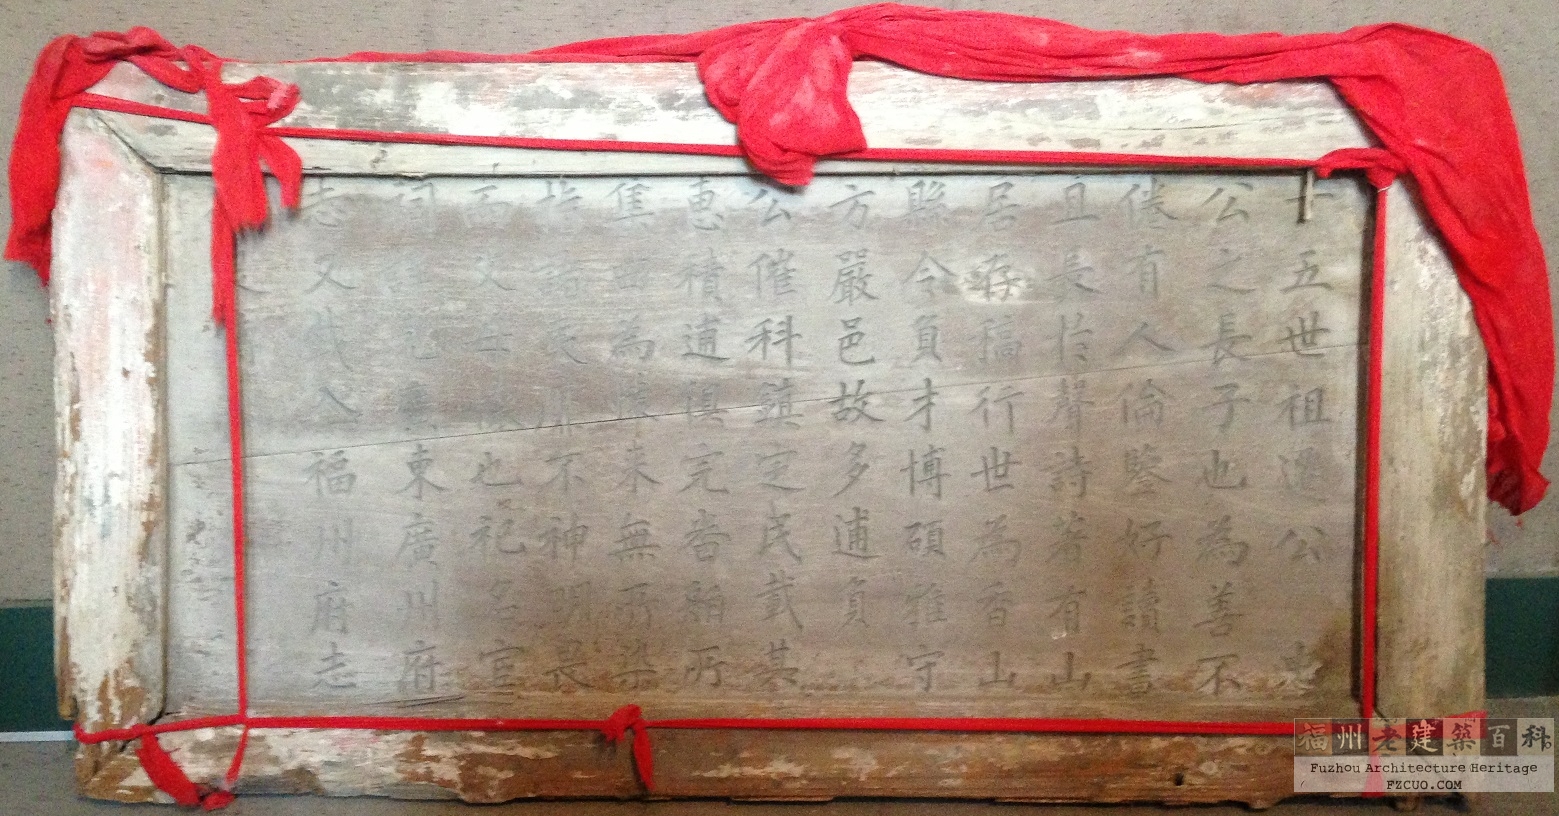 十五世祖遜公忠
公之長子也為善不
倦有人倫鑒好讀書
且長於聲詩著有山
居存稿行世為香山
縣令負才博碩雅守
方嚴邑故多逋負
公催科鎮定民戴其
惠積逋俱完當舶所
集四為無所染
指不神明畏
而父也祀名宦
祠東廣州府
志又載入福州府志
福州老建築百科
Fuzhou Architecture Heritage
FZCUO.COM